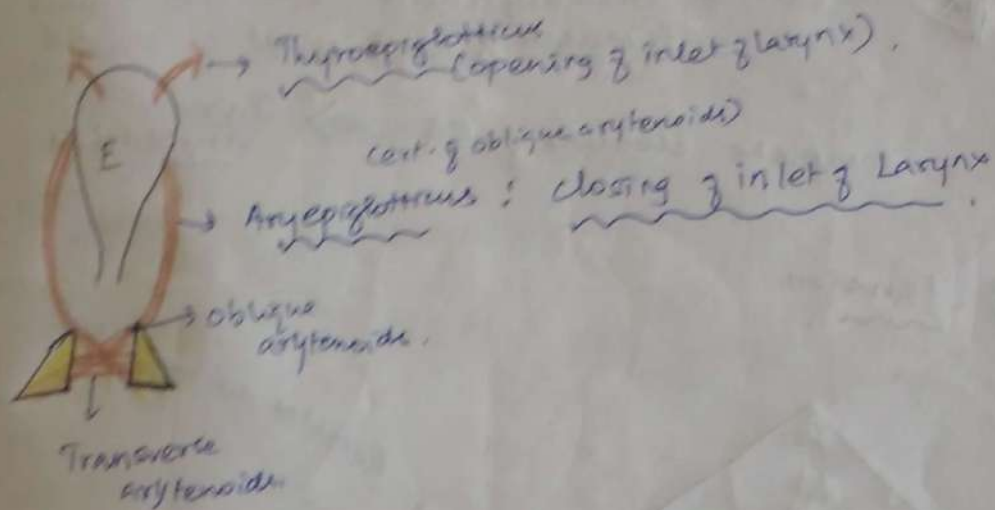 Thyroepiglotticus
(opening of inlet of larynx).
E
(ext. of oblique arytenoids)
Aryepiglotticus : Closing of inlet of Larynx.
oblique
arytenoids.
Transverse
arytenoids.